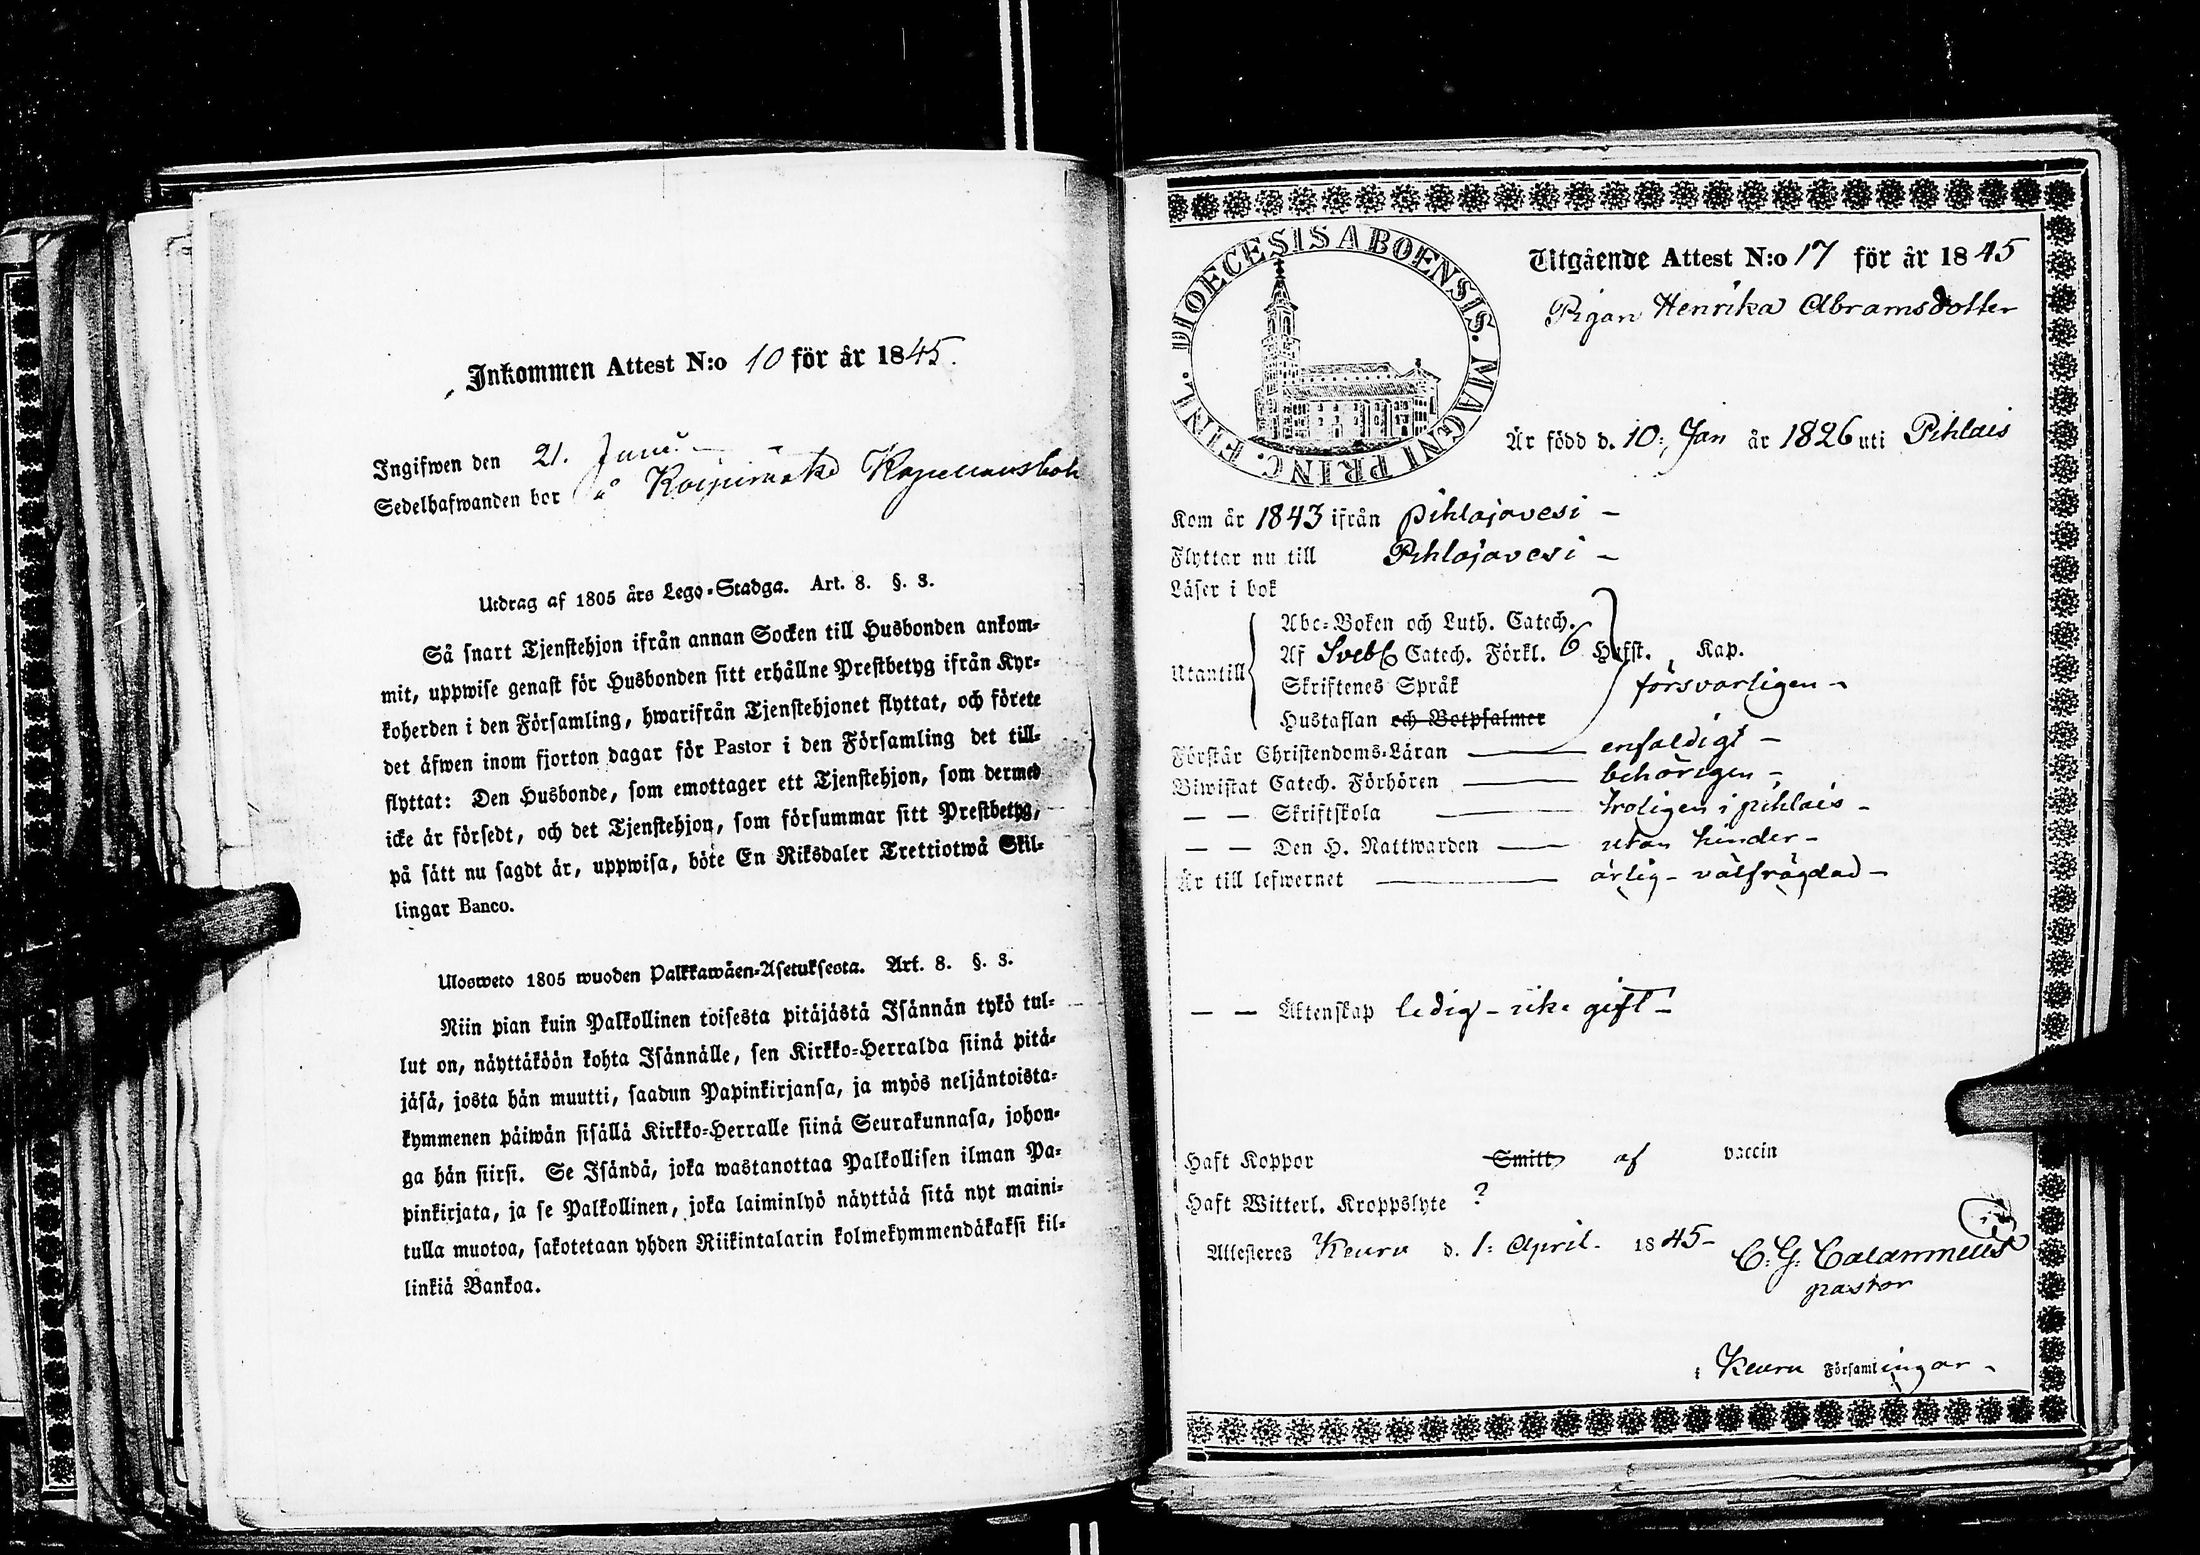 Inkommen Attest N:o 10 för år 1845.
Ingifwen den 21. Juni
Sedelhafwanden bor å Kapellansbol
Utdrag af 1805 års Lego-Stadga. Art. 8. §. 3.
Så snart Tjenstehjon ifrån annan Socken till Husbonden ankom-
mit, uppwise genast för Husbonden sitt erhållne Prestbetyg ifrån Kyr-
koherden i den Församling, hwarifrån Tjenstehjonet flyttat, och förete
det äfwen inom fjorton dagar för Pastor i den Församling det till-
flyttat: Den Husbonde, som emottager ett Tjenstehjon, som dermed
icke är försedt, och det Tjenstehjon, som försummar sitt Prestbetyg,
på sätt nu sagdt är, uppwisa, böte En Riksdaler Trettiotwå Skil-
lingar Banco.
Ulosweto 1805 wuoden Palkkawäen-Asetuksesta. Art. 8. §. 3.
Niin pian kuin Palkollinen toisesta pitäjästä Isännän tykö tul-
lut on, näyttäköön kohta Isännälle, sen Kirkko-Herralda siinä pitä-
jäsä, josta hän muutti, saadun Papinkirjansa, ja myös neljäntoista-
kymmenen päiwän sisällä Kirkko-Herralle siinä Seurakunnasa, johon-
ga hän siirsi. Se Isändä, joka wastanottaa Palkollisen ilman Pa-
pinkirjata, ja se Palkollinen, joka laiminlyö näyttää sitä nyt maini-
tulla muotoa, sakotetaan yhden Riikintalarin kolmekymmendäkaksi kil-
linkiä Bankoa.
DIOECESIS ABOENSIS. MAGNI PRINC. FINL.
Utgående Attest N:o 17 för år 1845
Pigan Henrika Abramsdotter
Är född d. 10: Jan år 1826 uti Pihlais
Kom år 1843 ifrån Pihlajavesi –
Flyttar nu till Pihlajavesi –
Läser i bok
Utantill
Abc-Boken och Luth. Catech.
Af Sveb Catech. Förkl. 6 Hufst. Kap.
Skriftenes Språk försvarligen –
Hustaflan och Botpsalmer
Förstår Christendoms-Läran enfaldigt –
Biwistat Catech. Förhören behörigen –
— — Skriftskola troligen i pihlais –
— — Den H. Nattwarden utan hinder –
Är till lefwernet ärlig – välfrägdad –
— — Äktenskap ledig – icke gift –
Haft Koppor Smitt af vaccin
Haft Witterl. Kroppslyte ?
Attesteres Keuru d. 1: April. 1845 –
C. G. Calamnius
pastor
i Keuru Församlingar –